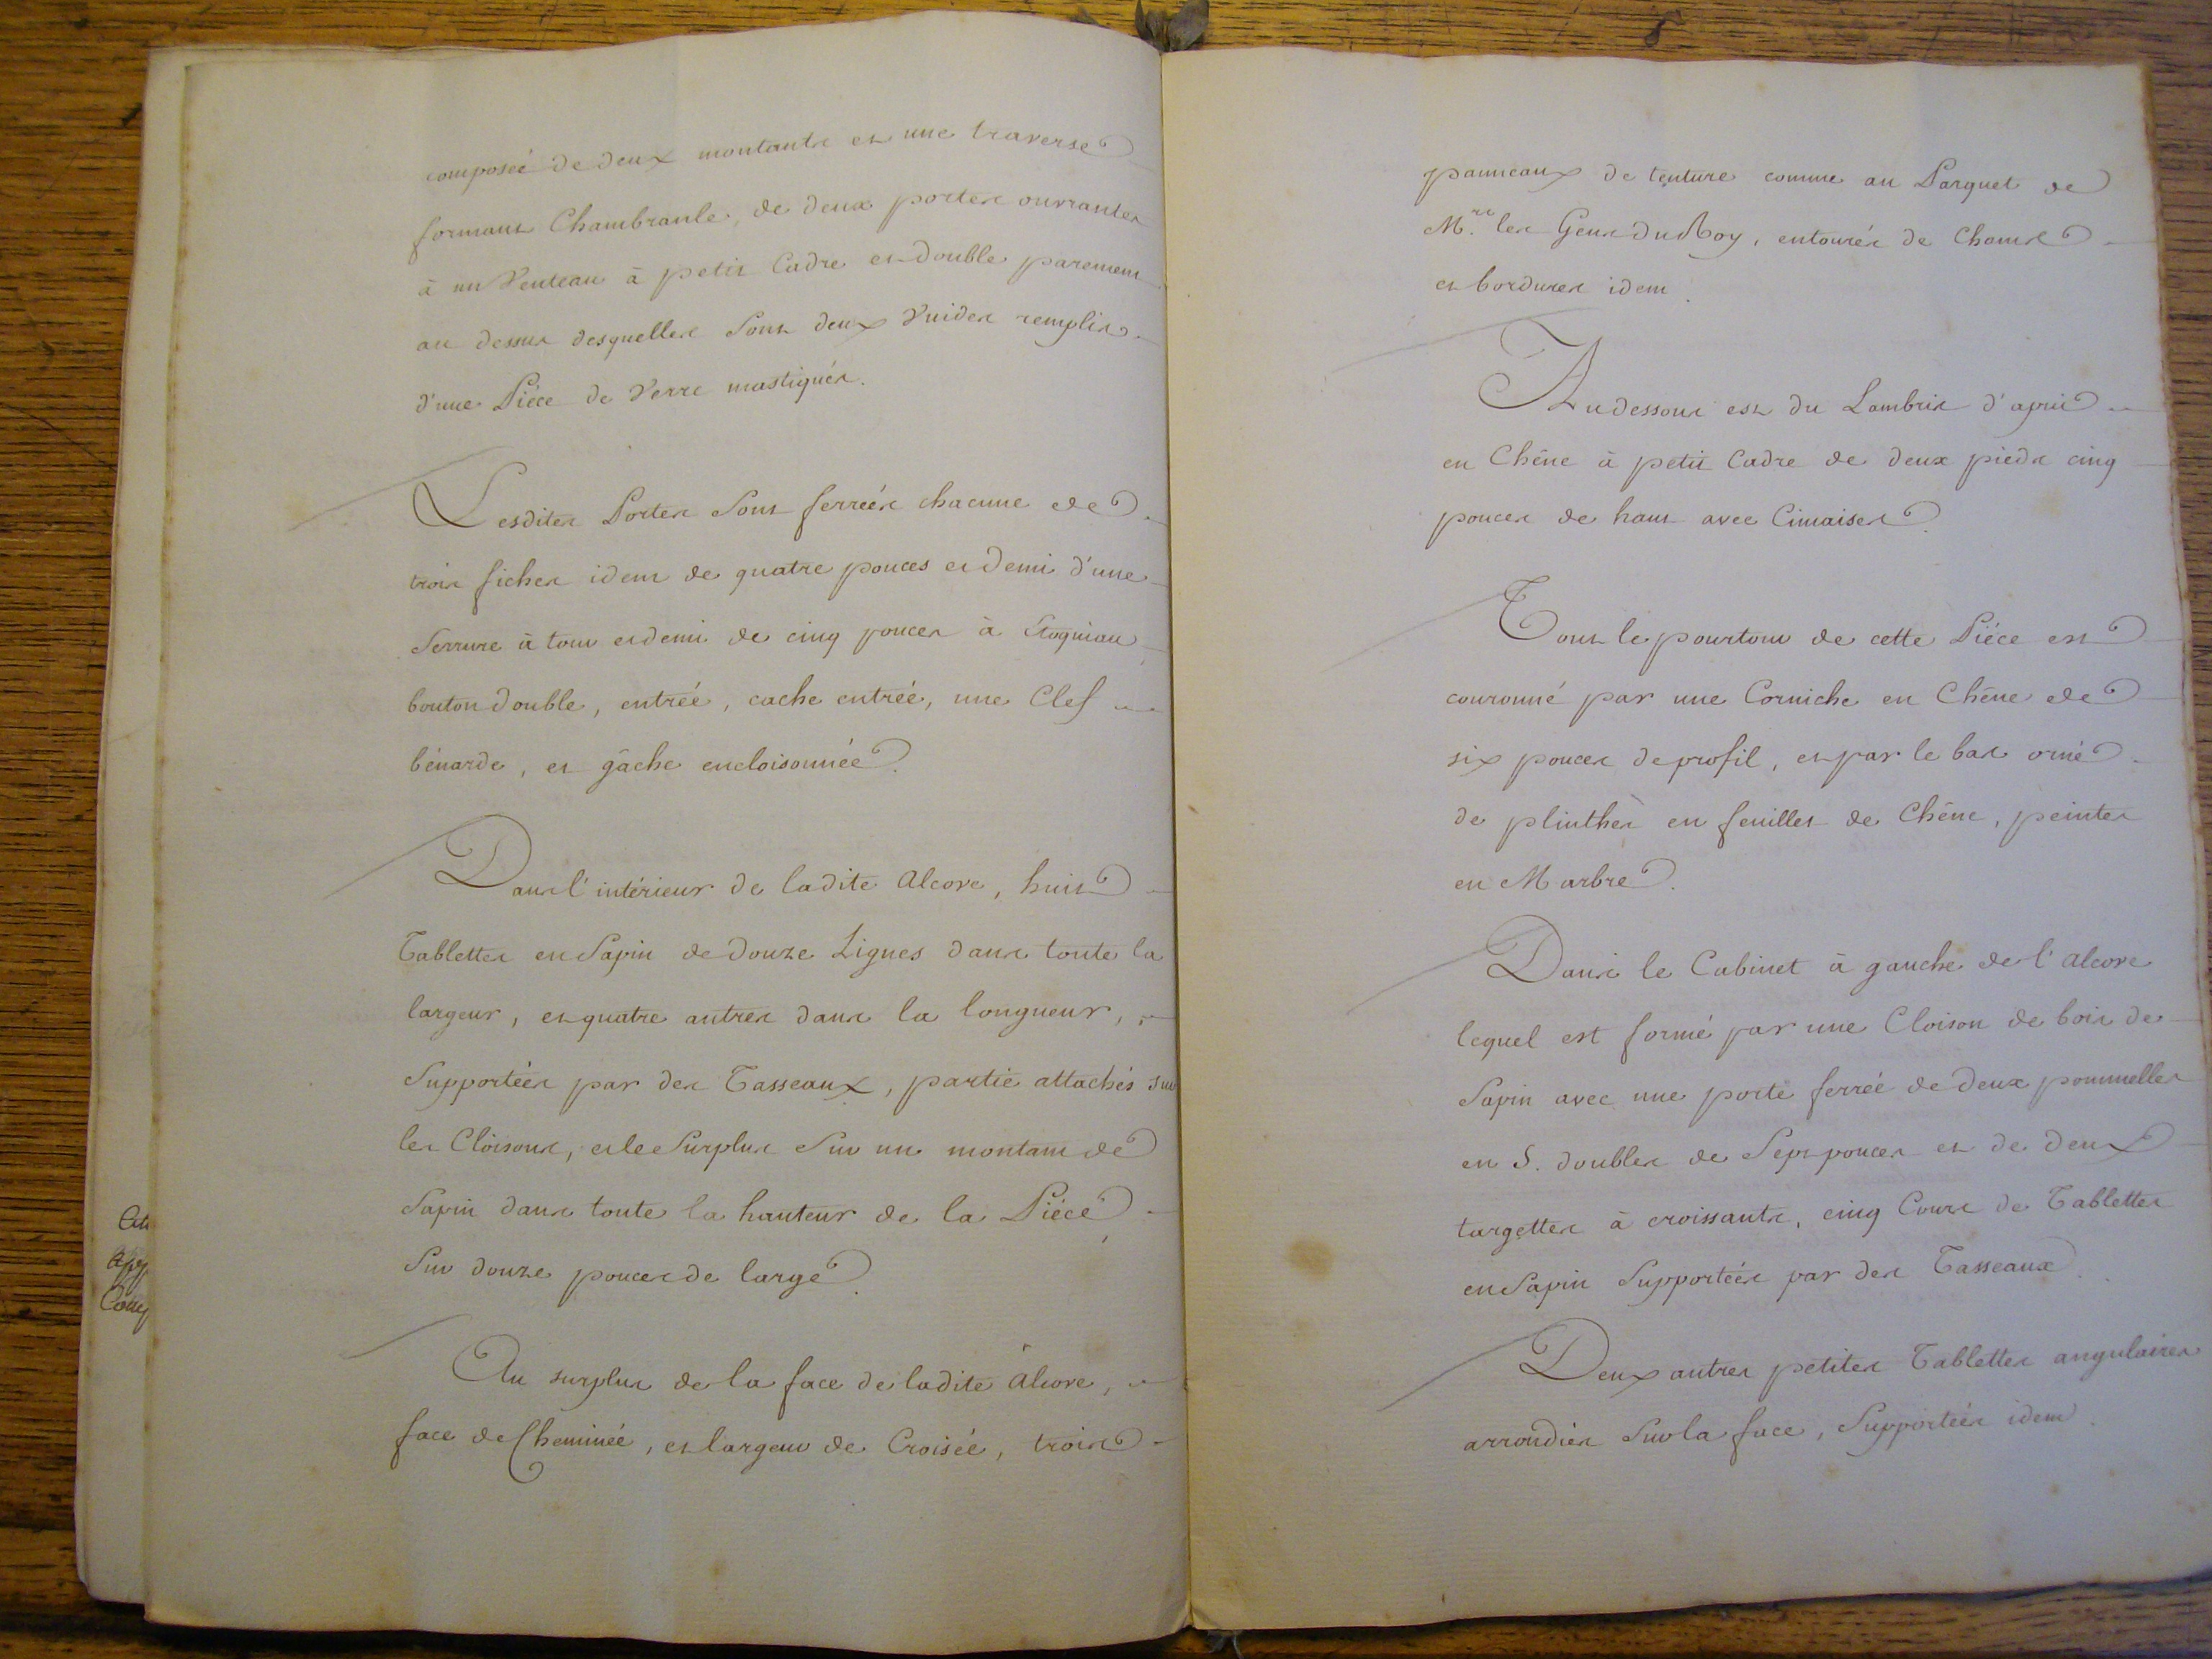 composée de deux montants et une traverse
formant Chambranle, de deux portes ouvrantes
à un Venteau à petit Cadre et double parement
au dessus desquelles sont deux Vuides remplis
d'une Piéce de Verre mastiqués.
Lesdites Portes sont ferrées chacune de
trois fiches idem de quatre pouces et demi d'une
Serrure à tour et demi de cinq pouces à
bouton double, entrée, cache entrée, une Clef
bénarde, et gâche encloisonnée.
Dans l'intérieur de ladite Alcove, huit
Tablettes en Sapin de douze Lignes dans toute la
largeur, et quatre autres dans la longueur,
Supportées par des Tasseaux, partie attachés sur
les Cloisons, et le Surplus Sur un montant de
Sapin dans toute la hauteur de la Piéce,
Sur douze pouces de large.
Au surplus de la face de ladite Alcove,
face de Cheminée, et largeur de Croisée, trois
panneaux de tenture comme au Parquet de
M.rs les Gens du Roy, entourés de Champs
et bordures idem.
Au dessous est du Lambris d'apui
en Chêne à petit Cadre de deux pieds cinq
pouces de haut avec Cimaises.
Tout le pourtour de cette Piéce est
couronné par une Corniche en Chêne de
six pouces de profil, et par le bas orné
de plinthes en feuillet de Chêne, peintes
en Marbre.
Dans le Cabinet à gauche de l'alcove
lequel est formé par une Cloison de bois de
Sapin avec une porte ferrée de deux pommelles
en S. doubles de Sept pouces et de deux
targettes à croissants, cinq Cours de Tablettes
en Sapin Supportées par des Tasseaux.
Deux autres petites Tablettes angulaires
arrondies Sur la face, Supportées idem.